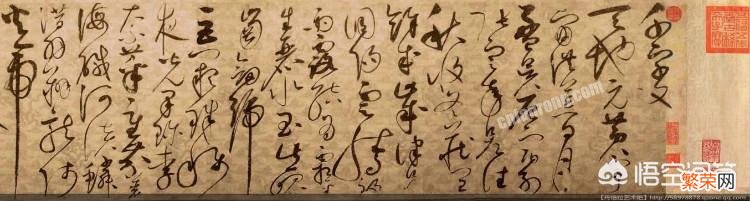 千字文
天地元黃宇
宙洪荒日月
盈昃辰宿列
張寒來暑往
秋收冬藏閏
餘成歲律呂
調陽雲騰致
雨露結為霜金
生麗水玉出崑
崗劍號
巨闕珠稱
夜光果珍李
柰菜重芥薑
海鹹河淡鱗
潛羽翔龍師
火帝
悟空问答
繁荣网